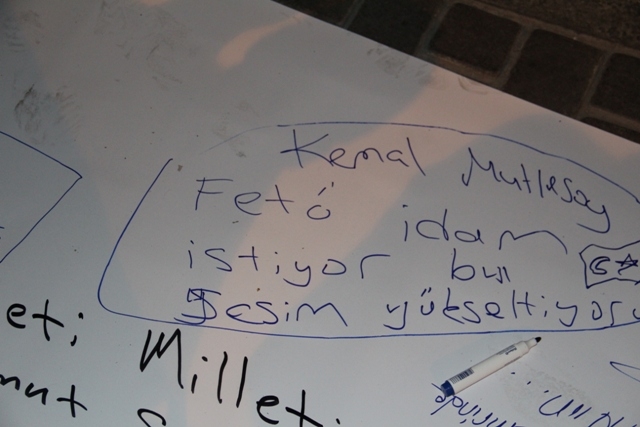 Kemal Mutlusoy
Fetö idam
istiyor bu
Sesim yükseltiyoru
et;
Millet;
mut